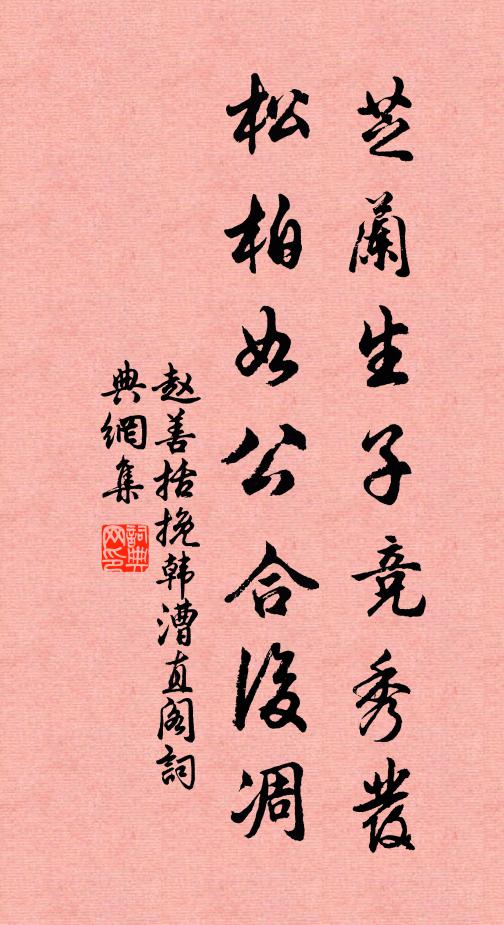 芝蘭生子竞秀發
松柏如公合後凋
赵善括挽韩漕直阁詞
典網集
詞典网印